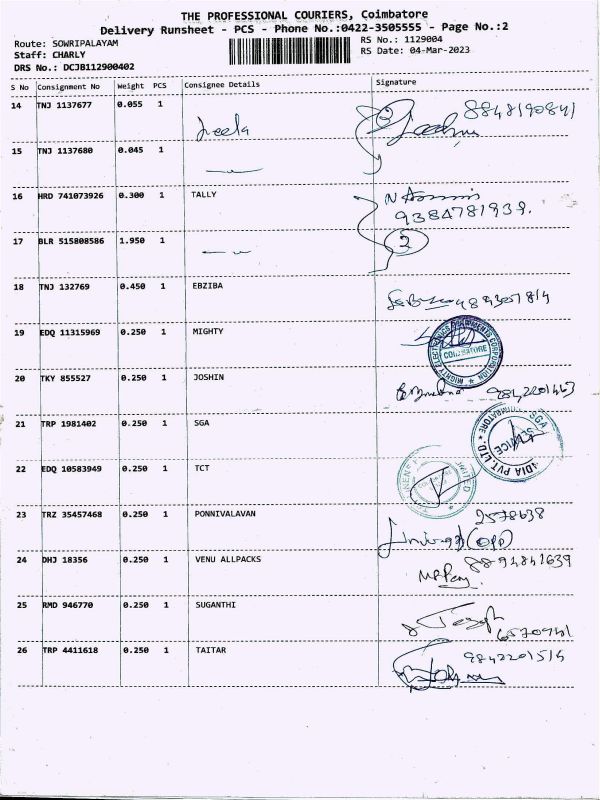 THE PROFESSIONAL COURIERS, Coimbatore
Delivery Runsheet - PCS - Phone No.:0422-3505555 - Page No.:2
Route: SOWRIPALAYAM RS No.: 1129004
Staff: CHARLY RS Date: 04-Mar-2023
DRS No.: DCJB112900402
S No Consignment No Weight PCS Consignee Details Signature
14 TNJ 1137677 0.055 1 Leela 8848190841
15 TNJ 1137680 0.045 1
16 HRD 741073926 0.300 1 TALLY
17 BLR 515808586 1.950 1 2
18 TNJ 132769 0.450 1 EBZIBA
19 EDQ 11315969 0.250 1 MIGHTY
MIGHTY ELECTRONICS CORPORATION COIMBATORE
20 TKY 855527 0.250 1 JOSHIN
21 TRP 1981402 0.250 1 SGA
SGA SERVICE INDIA PVT. LTD
22 EDQ 10583949 0.250 1 TCT
23 TRZ 35457468 0.250 1 PONNIVALAVAN 2578638
(opp)
24 DHJ 18356 0.250 1 VENU ALLPACKS 8894841639
25 RMD 946770 0.250 1 SUGANTHI
6570941
26 TRP 4411618 0.250 1 TAITAR 9842201514